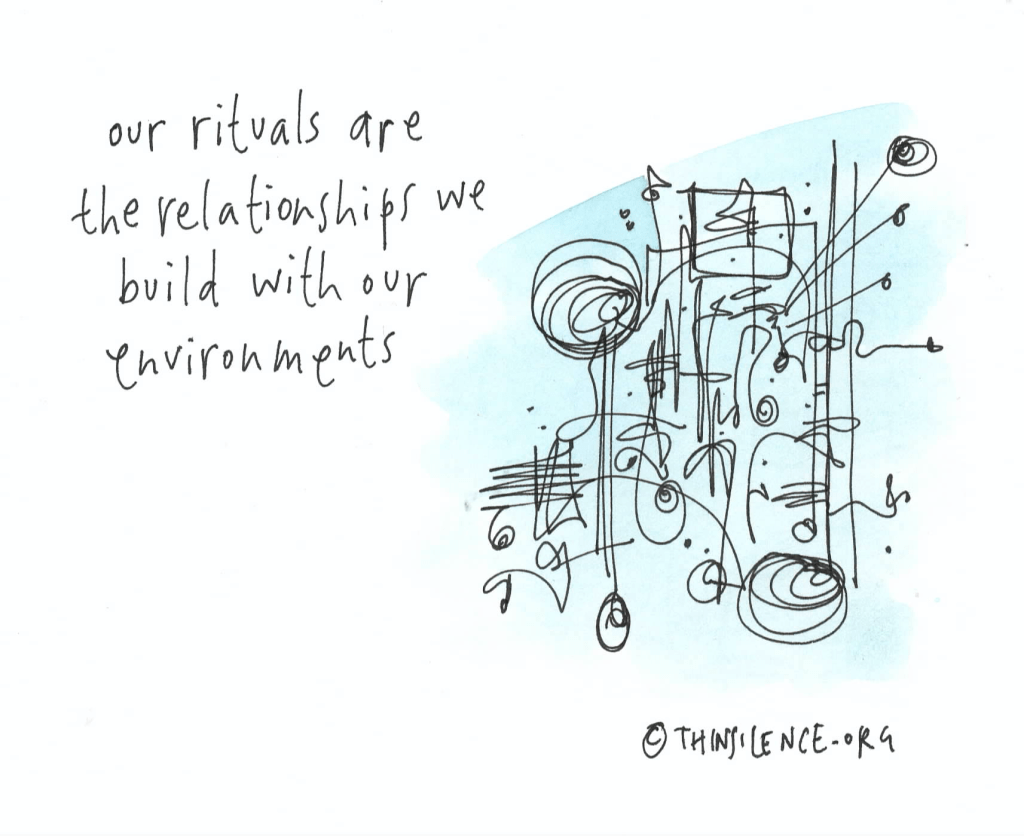 our rituals are
the relationships we
build with our
environments
© THINSILENCE.ORG